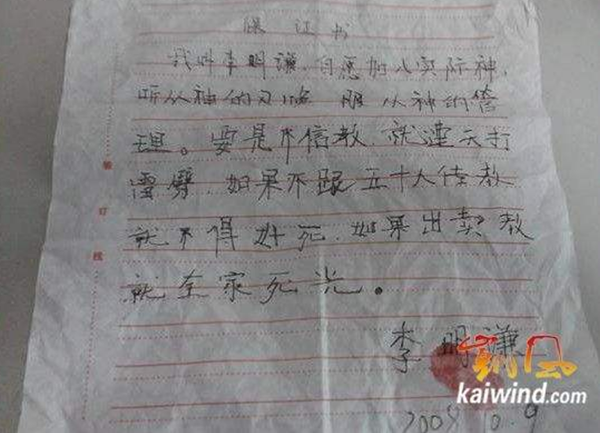 保证书
我叫李明谦,自愿加入实际神,
听从神的 服从神的管
理。要是不信教,就遭天打
雷劈,如果不跟五十人传教
就不得好死,如果出卖教
就全家死光。
李明谦
200 0.9
装
订
线
凯风
kaiwind.com